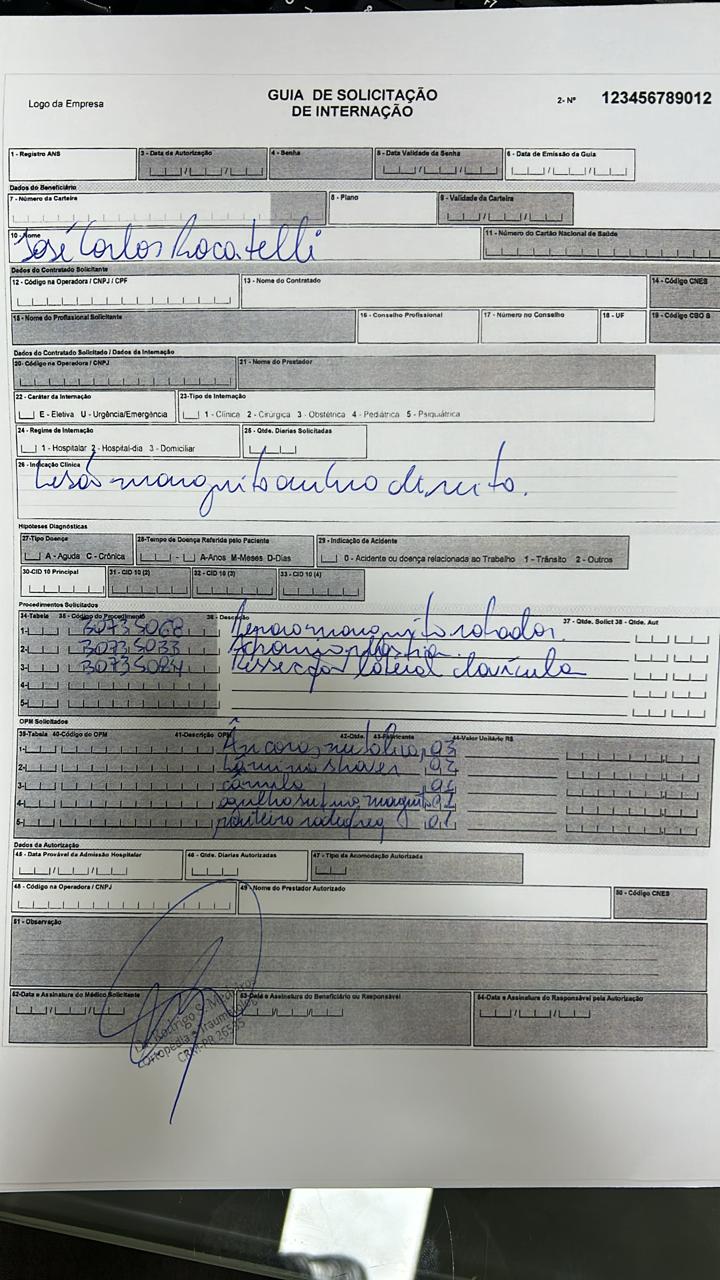 Logo da Empresa
GUIA DE SOLICITAÇÃO
DE INTERNAÇÃO
2- Nº 123456789012
1 - Registro ANS
3 - Data da Autorização
4 - Senha
5 - Data Validade da Senha
6 - Data de Emissão da Guia
Dados do Beneficiário
7 - Número da Carteira
8 - Plano
9 - Validade da Carteira
10 - Nome
José Carlos Rocatelli
11 - Número do Cartão Nacional de Saúde
Dados do Contratado Solicitante
12 - Código na Operadora / CNPJ / CPF
13 - Nome do Contratado
14 - Código CNES
15 - Nome do Profissional Solicitante
16 - Conselho Profissional
17 - Número no Conselho
18 - UF
19 - Código CBO S
Dados do Contratado Solicitado / Dados da Internação
20 - Código na Operadora / CNPJ
21 - Nome do Prestador
22 - Caráter da Internação
E - Eletiva U - Urgência/Emergência
23-Tipo de Internação
1 - Clínica 2 - Cirúrgica 3 - Obstétrica 4 - Pediátrica 5 - Psiquiátrica
24 - Regime de Internação
1 - Hospitalar 2 - Hospital-dia 3 - Domiciliar
25 - Qtde. Diarias Solicitadas
26 - Indicação Clínica
Lesão manguito ombro direito.
Hipóteses Diagnósticas
27-Tipo Doença
A - Aguda C - Crônica
28-Tempo de Doença Referida pelo Paciente
A-Anos M-Meses D-Dias
29 - Indicação de Acidente
0 - Acidente ou doença relacionada ao Trabalho 1 - Trânsito 2 - Outros
30-CID 10 Principal
31 - CID 10 (2)
32 - CID 10 (3)
33 - CID 10 (4)
Procedimentos Solicitados
34-Tabela 35 - Código do Procedimento 36 - Descrição 37 - Qtde. Solict 38 - Qtde. Aut
1- 30735068 Reparo manguito rotador.
2- 30735033 Acromioplastia
3- 30735084 Ressecção lateral clavícula
4-
5-
OPM Solicitados
39-Tabela 40-Código do OPM 41-Descrição OPM 42-Qtde. 43-Fabricante 44-Valor Unitário R$
1- Âncoras metálica 03
2- Lâminas shaver 02
3- cânula 01
4- agulha sutura manguito 01
5- ponteira radiofreq 01
Dados da Autorização
45 - Data Provável da Admissão Hospitalar
46 - Qtde. Diarias Autorizadas
47 - Tipo da Acomodação Autorizada
48 - Código na Operadora / CNPJ
49 - Nome do Prestador Autorizado
50 - Código CNES
51 - Observação
52-Data e Assinatura do Médico Solicitante
53-Data e Assinatura do Beneficiário ou Responsável
54-Data e Assinatura do Responsável pela Autorização
Dr. Rodrigo
Ortopedia e Traumatologia
CRM-PR